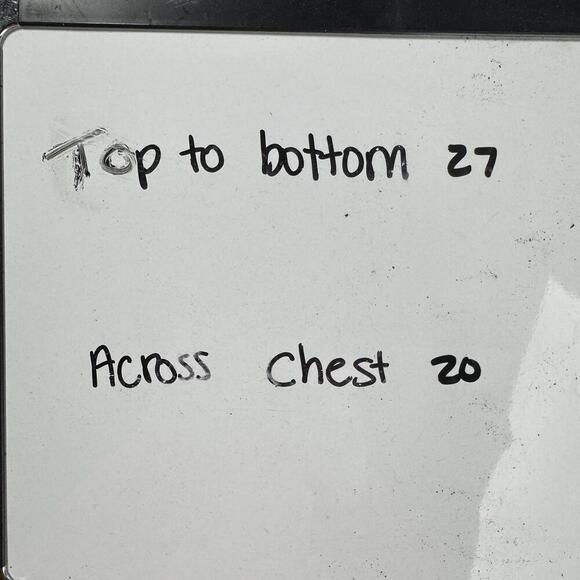 Top to bottom 27
Across Chest 20